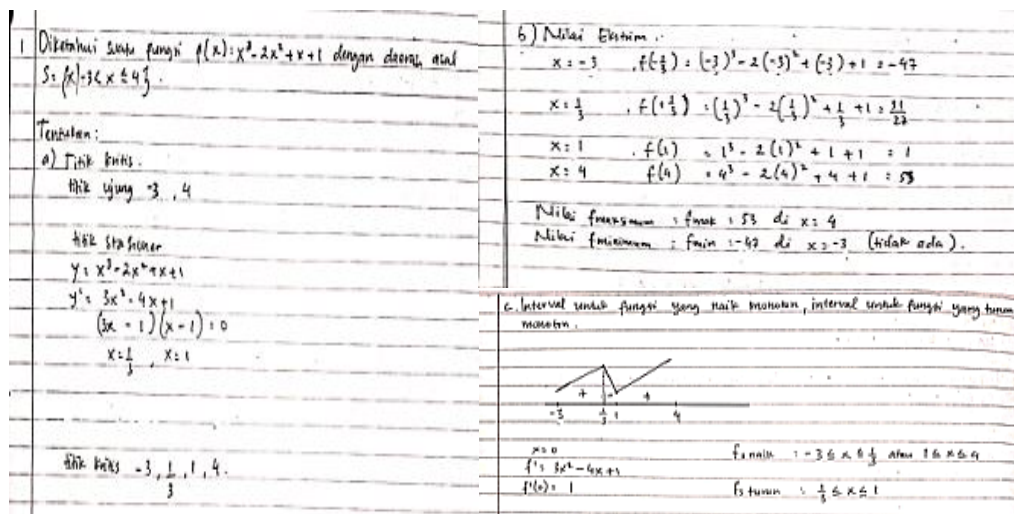 1 Diketahui suatu fungsi f(x) = x³ - 2x² + x + 1 dengan daerah asal
S = {x|-3 < x ≤ 4}.
Tentukan:
a) Titik kritis.
titik ujung -3, 4
titik stasioner
y = x³ - 2x² + x + 1
y' = 3x² - 4x + 1
(3x - 1)(x - 1) = 0
x = 1/3, x = 1
titik kritis -3, 1/3, 1, 4.
b) Nilai Ekstrim.
x = -3 . f(-3) = (-3)³ - 2(-3)² + (-3) + 1 = -47
x = 1/3 . f(1/3) = (1/3)³ - 2(1/3)² + 1/3 + 1 = 31/27
x = 1 . f(1) = 1³ - 2(1)² + 1 + 1 = 1
x = 4 f(4) = 4³ - 2(4)² + 4 + 1 = 53
Nilai fmaksimum : fmak = 53 di x = 4
Nilai fminimum : fmin = -47 di x = -3 (tidak ada).
c. Interval untuk fungsi yang naik monoton, interval untuk fungsi yang turun
monoton.
+ - +
-3 1/3 1 4
x = 0
f' = 3x² - 4x + 1
f'(0) = 1
fs naik : -3 ≤ x ≤ 1/3 atau 1 ≤ x ≤ 4
fs turun : 1/3 ≤ x ≤ 1